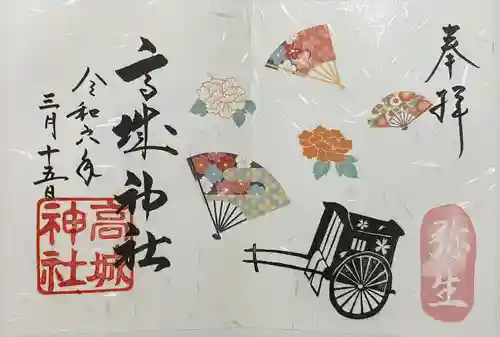 奉拝
弥生
高城神社
高城
神社
令和六年
三月十五日